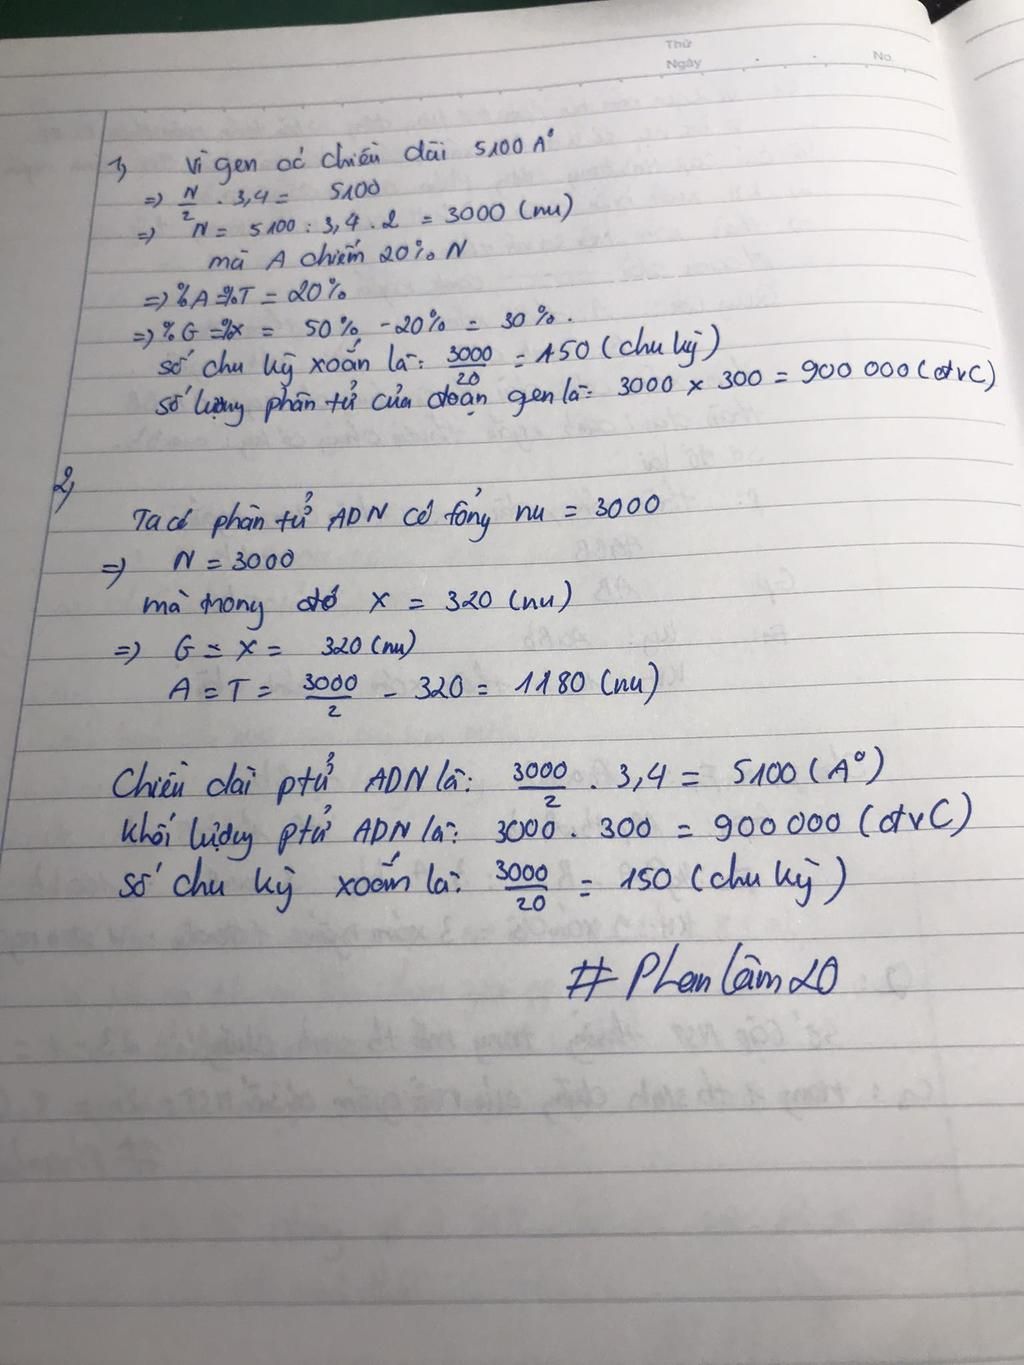 Thứ
Ngày
No.
1, Vì gen có chiều dài 5100 A°
=> N/2 . 3,4 = 5100
=> N = 5100 : 3,4 . 2 = 3000 (nu)
mà A chiếm 20% N
=> %A = %T = 20%
=> %G = %X = 50% - 20% = 30%.
số chu kỳ xoắn là: 3000/20 = 150 (chu kỳ)
số lượng phân tử của đoạn gen là: 3000 x 300 = 900 000 (đvC)
2,
Ta có phân tử ADN có tổng nu = 3000
=> N = 3000
mà trong đó X = 320 (nu)
=> G = X = 320 (nu)
A = T = 3000/2 - 320 = 1180 (nu)
Chiều dài ptử ADN là: 3000/2 . 3,4 = 5100 (A°)
Khối lượng ptử ADN là: 3000 . 300 = 900 000 (đvC)
số chu kỳ xoắn là: 3000/20 = 150 (chu kỳ)
# Phan Lâm 20